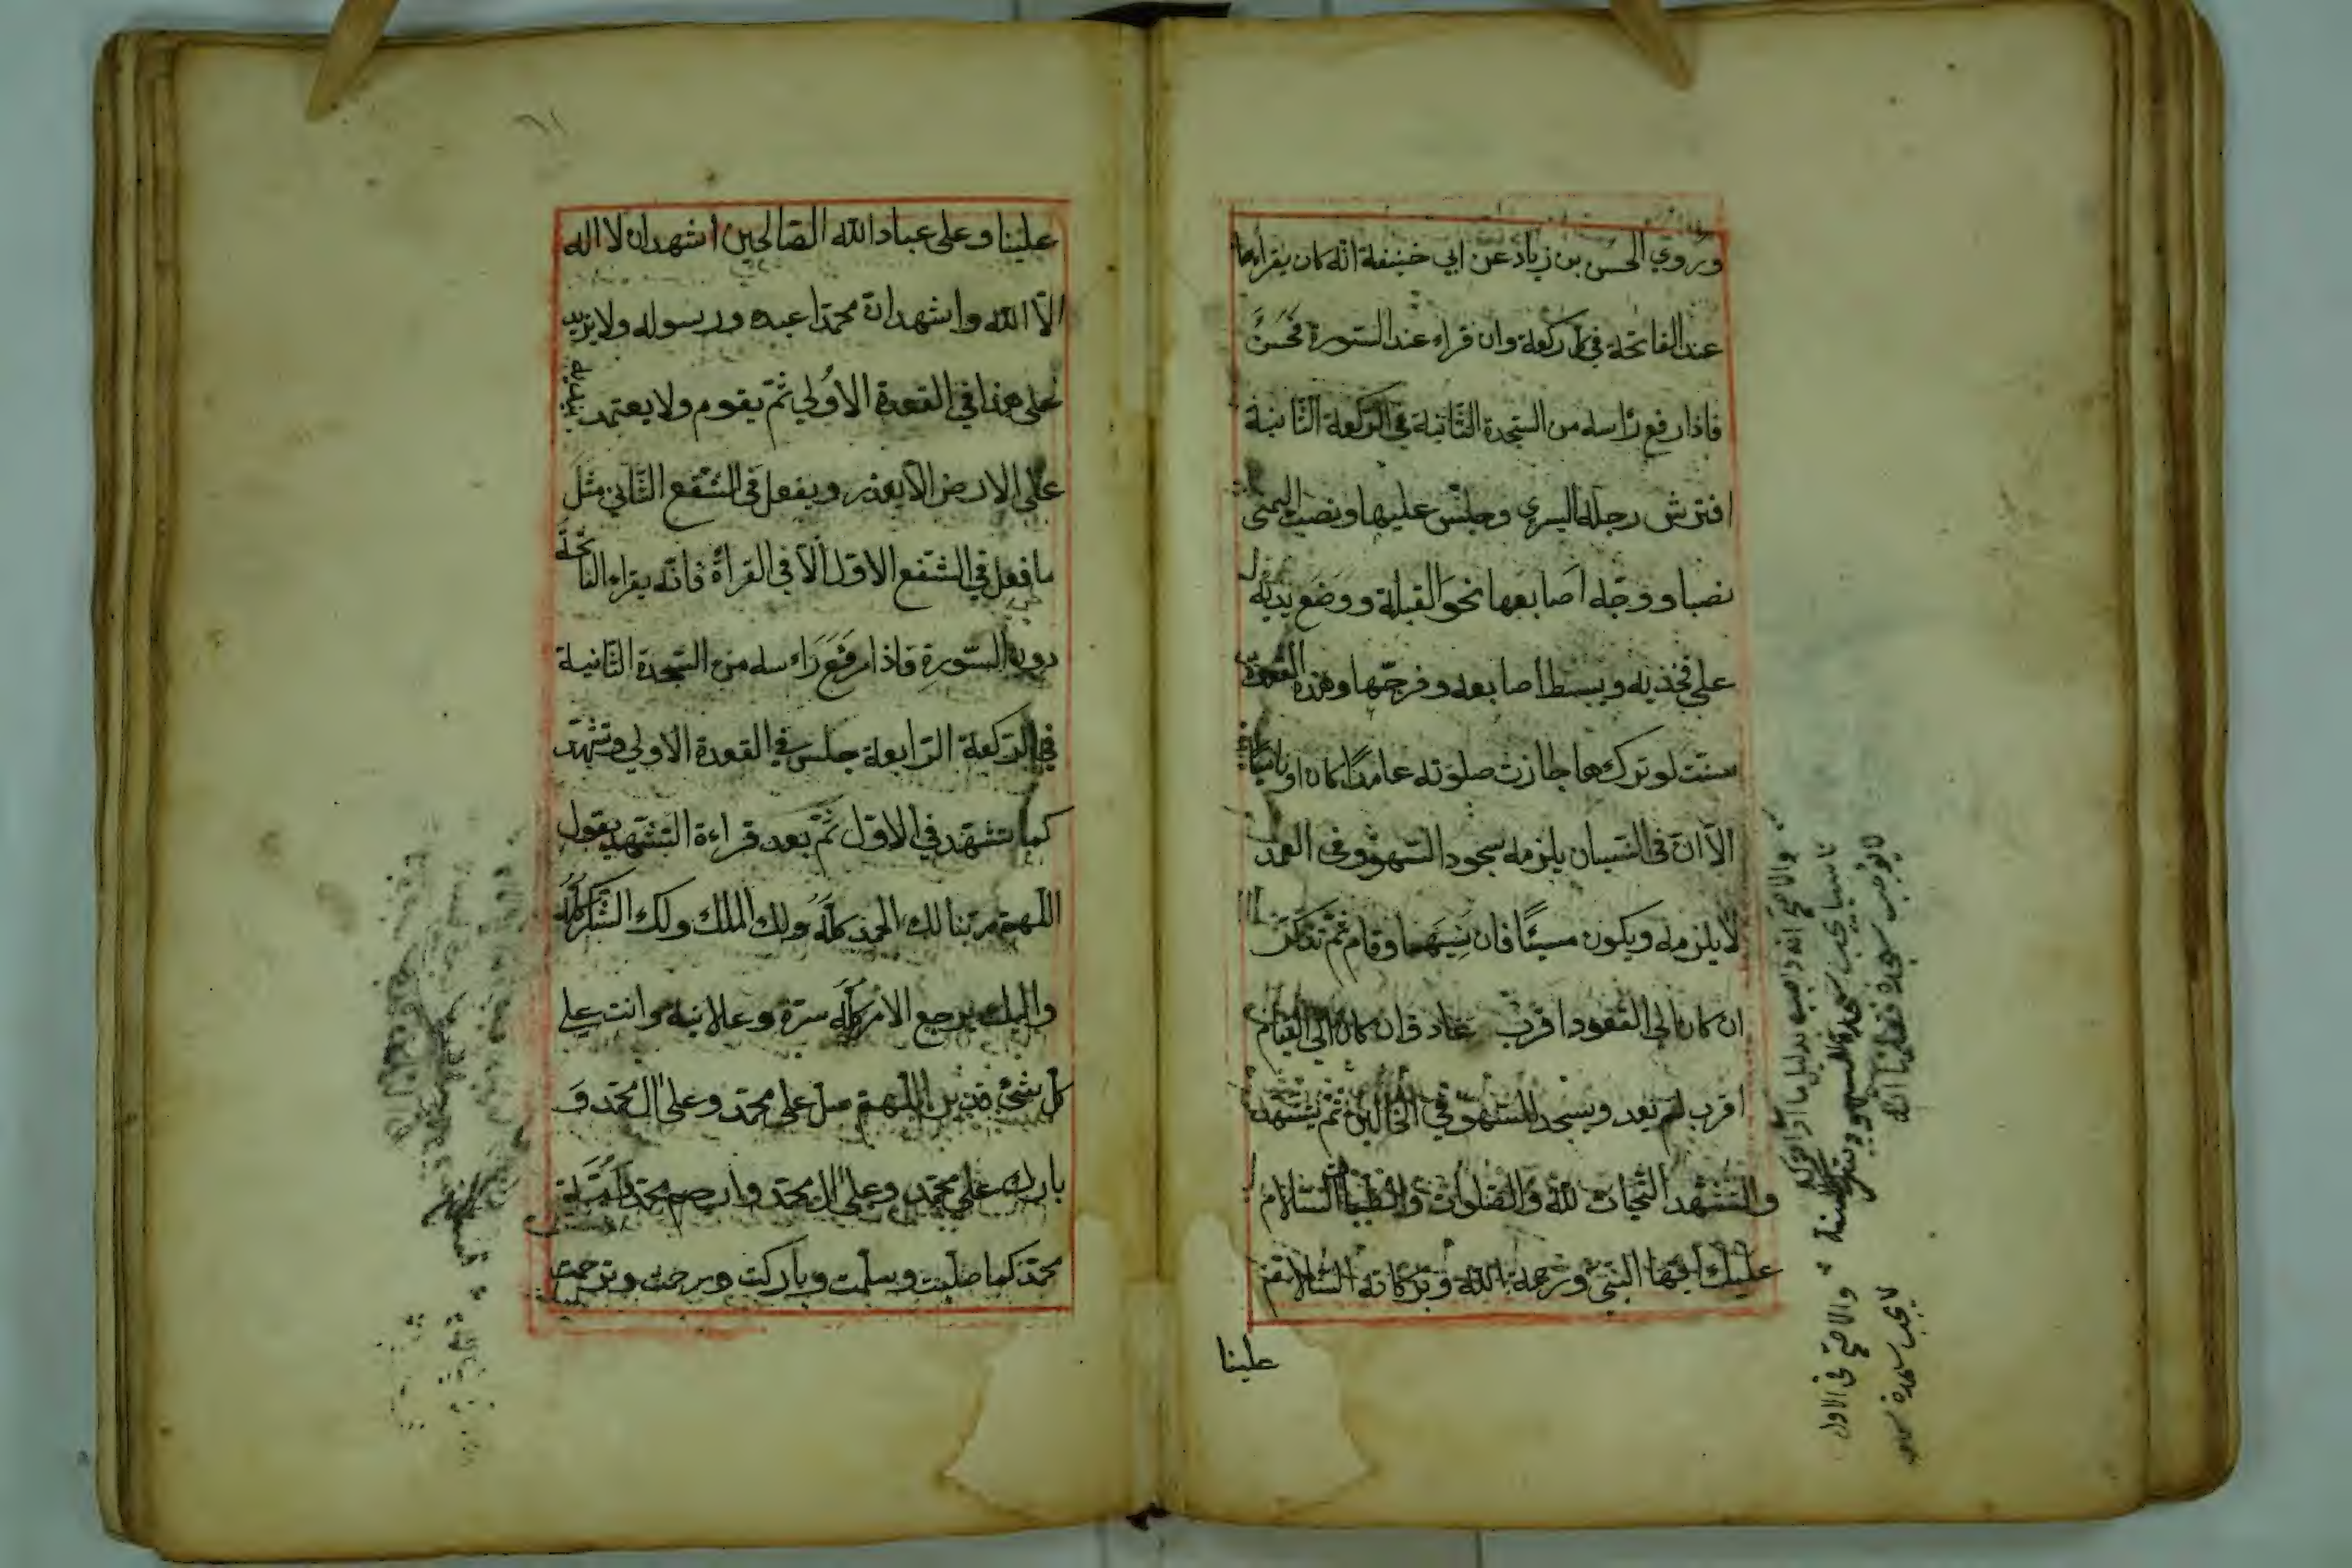 وروي الحسن بن زياد عن ابي حنيفة انّه كان يقراءها
عند الفاتحة في كل ركعة وان قراء عند السّورة فحَسَنٌ
فاذا رفع رَاسه من السّجدة الثّانية في الرّكعة الثّانية
افترش رجله اليسري وجلس عليها ونصب اليمنى
نصبا ووجّه اصابعها نحو القبلة ووضع يديه
على فخذيه ويبسط اصابعه وفرجّها وهذه القعدة
سنّت لو تركها جازت صلوته عامدًا كان او ناسيًا
الّا انّ في النّسيان يلزمه سجود السّهو وفي العمد
لا يلزمه ويكون مسيئًا فان نَسِيَهَا وقام ثمّ تذكّر
ان كان الى القعود اقرب عاد وان كان الي القيام
اقرب لم يعد ويسجد للسّهو في الحالين ثمّ يتشهّد
والتّشهّد التّحيات للّه والصّلوات والطّيبات السّلام
عليك ايّها النّبيّ ورحمة اللّه وبركاته السّلام
علينا
والاصح انه واجب بدليل ما اذا تركه
ناسيا يجب سجدة السهو
لا توجب سجدة فعلمنا انه
والاصح في الاول
لا يجب سجدة سهو
علينا وعلى عباد اللّه الصّالحين اشهد ان لا اله
الّا اللّه واشهد انّ محمّدا عبده ورسوله ولا يزيد
على هذا في القعدة الاُولي ثمّ يقوم ولا يعتمد بيديه
على الارض الّا بعذر ويفعل في الشّفع الثّاني مثل
ما فعل في الشّفع الاوّل الّا في القراة فانّه يقراء الفاتحة
دون السّورةِ فاذا رفع رَاءسه من السّجدة الثّانية
في الرّكعة الرّابعة جلس في القعدة الاولي وتشهّد
كما تشهّد في الاوّل ثمّ بعد قراءة التّشهّد يقول
اللّهم ربّنا لك الحمد كلّه ولك الملك ولك الشّكر كلّه
واليك يرجع الامر كلّه سرّه وعلانيه وانت على
كل شئ قدير اللّهم صل على محمّد وعلى ال محمّد و
بارك على محمّد وعلى ال محمّد وارحم محمّد
محمّد كما صلّيت وسلّمت وباركت ورحمت وترحمت